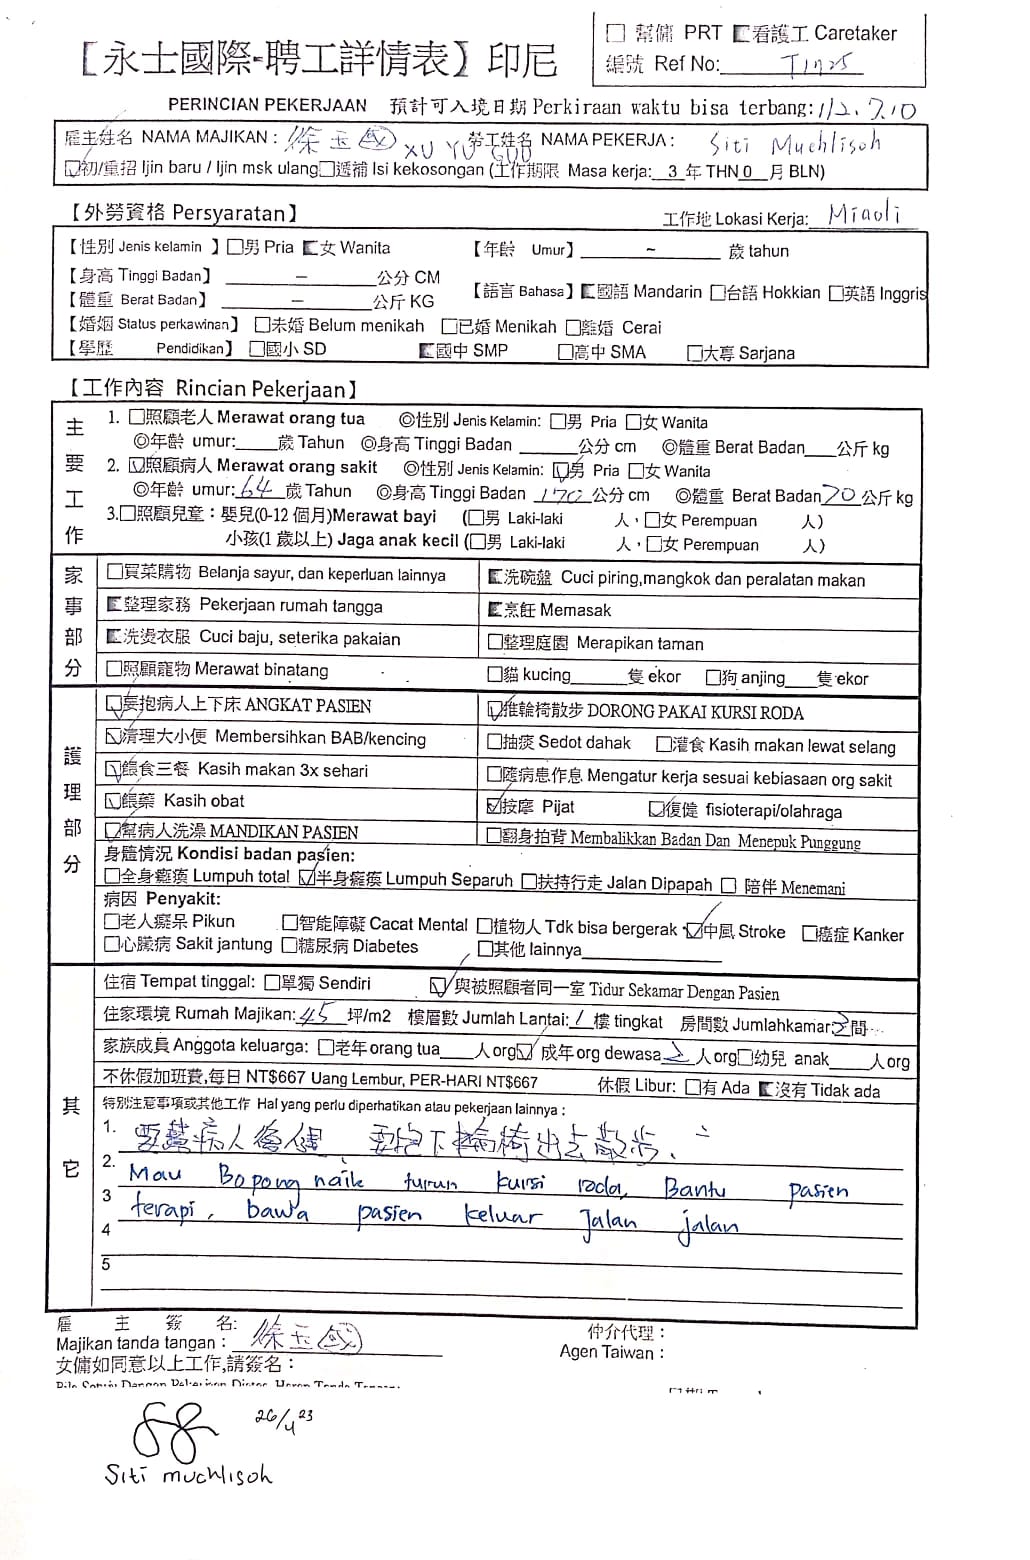 ☐ 幫傭 PRT ☑看護工 Caretaker
【永士國際-聘工詳情表】印尼
編號 Ref No:
PERINCIAN PEKERJAAN 預計可入境日期 Perkiraan waktu bisa terbang: 112.7.10
雇主姓名 NAMA MAJIKAN : 徐玉國 XU YU GUO 勞工姓名 NAMA PEKERJA : Siti Muchlisoh
☑初/重招 Ijin baru / Ijin msk ulang☐遞補 Isi kekosongan (工作期限 Masa kerja: 3 年 THN 0 月 BLN)
【外勞資格 Persyaratan】 工作地 Lokasi Kerja: Miaoli
【性別 Jenis kelamin 】☐男 Pria ☑女 Wanita 【年齡 Umur】 ~ 歲 tahun
【身高 Tinggi Badan】 – 公分 CM
【體重 Berat Badan】 – 公斤 KG 【語言 Bahasa】☑國語 Mandarin ☐台語 Hokkian ☐英語 Inggris
【婚姻 Status perkawinan】 ☐未婚 Belum menikah ☐已婚 Menikah ☐離婚 Cerai
【學歷 Pendidikan】 ☐國小 SD ☑國中 SMP ☐高中 SMA ☐大專 Sarjana
【工作內容 Rincian Pekerjaan】
主要工作
1. ☐照顧老人 Merawat orang tua ◎性別 Jenis Kelamin: ☐男 Pria ☐女 Wanita
◎年齡 umur:____歲 Tahun ◎身高 Tinggi Badan ______公分 cm ◎體重 Berat Badan___公斤 kg
2. ☑照顧病人 Merawat orang sakit ◎性別 Jenis Kelamin: ☑男 Pria ☐女 Wanita
◎年齡 umur: 64 歲 Tahun ◎身高 Tinggi Badan 170 公分 cm ◎體重 Berat Badan 70 公斤 kg
3.☐照顧兒童：嬰兒(0-12 個月)Merawat bayi (☐男 Laki-laki 人，☐女 Perempuan 人)
小孩(1 歲以上) Jaga anak kecil (☐男 Laki-laki 人，☐女 Perempuan 人)
家事部分
☐買菜購物 Belanja sayur, dan keperluan lainnya ☑洗碗盤 Cuci piring,mangkok dan peralatan makan
☑整理家務 Pekerjaan rumah tangga ☑烹飪 Memasak
☑洗燙衣服 Cuci baju, seterika pakaian ☐整理庭園 Merapikan taman
☐照顧寵物 Merawat binatang ☐貓 kucing______隻 ekor ☐狗 anjing___隻 ekor
護理部分
☑要抱病人上下床 ANGKAT PASIEN ☑推輪椅散步 DORONG PAKAI KURSI RODA
☑清理大小便 Membersihkan BAB/kencing ☐抽痰 Sedot dahak ☐灌食 Kasih makan lewat selang
☑餵食三餐 Kasih makan 3x sehari ☐陪病患作息 Mengatur kerja sesuai kebiasaan org sakit
☑餵藥 Kasih obat ☑按摩 Pijat ☑復健 fisioterapi/olahraga
☑幫病人洗澡 MANDIKAN PASIEN ☐翻身拍背 Membalikkan Badan Dan Menepuk Punggung
身體情況 Kondisi badan pasien:
☐全身癱瘓 Lumpuh total ☑半身癱瘓 Lumpuh Separuh ☐扶持行走 Jalan Dipapah ☐ 陪伴 Menemani
病因 Penyakit:
☐老人癡呆 Pikun ☐智能障礙 Cacat Mental ☐植物人 Tdk bisa bergerak ☑中風 Stroke ☐癌症 Kanker
☐心臟病 Sakit jantung ☐糖尿病 Diabetes ☐其他 lainnya
其它
住宿 Tempat tinggal: ☐單獨 Sendiri ☑與被照顧者同一室 Tidur Sekamar Dengan Pasien
住家環境 Rumah Majikan: 45 坪/m2 樓層數 Jumlah Lantai: 1 樓 tingkat 房間數 Jumlahkamar: 3 間
家族成員 Anggota keluarga: ☐老年 orang tua___人 org☑ 成年 org dewasa 2 人 org☐幼兒 anak____人 org
不休假加班費,每日 NT$667 Uang Lembur, PER-HARI NT$667 休假 Libur: ☐有 Ada ☑沒有 Tidak ada
特別注意事項或其他工作 Hal yang perlu diperhatikan atau pekerjaan lainnya :
1. 要幫病人復健、要抱下輪椅出去散步、
2. Mau Bopong naik turun kursi roda, Bantu pasien
3 terapi, bawa pasien keluar Jalan jalan
4
5
雇主簽名:
Majikan tanda tangan : 徐玉國 仲介代理：
Agen Taiwan :
女傭如同意以上工作,請簽名：
26/4 23
Siti muchlisoh